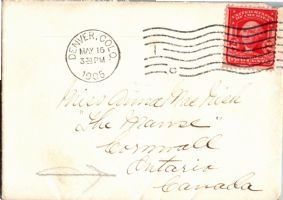 DENVER, COLO.
MAY 16
3 30 PM
1905
Miss Anna
"The Manse"
Cornwall
Ontario
Canada